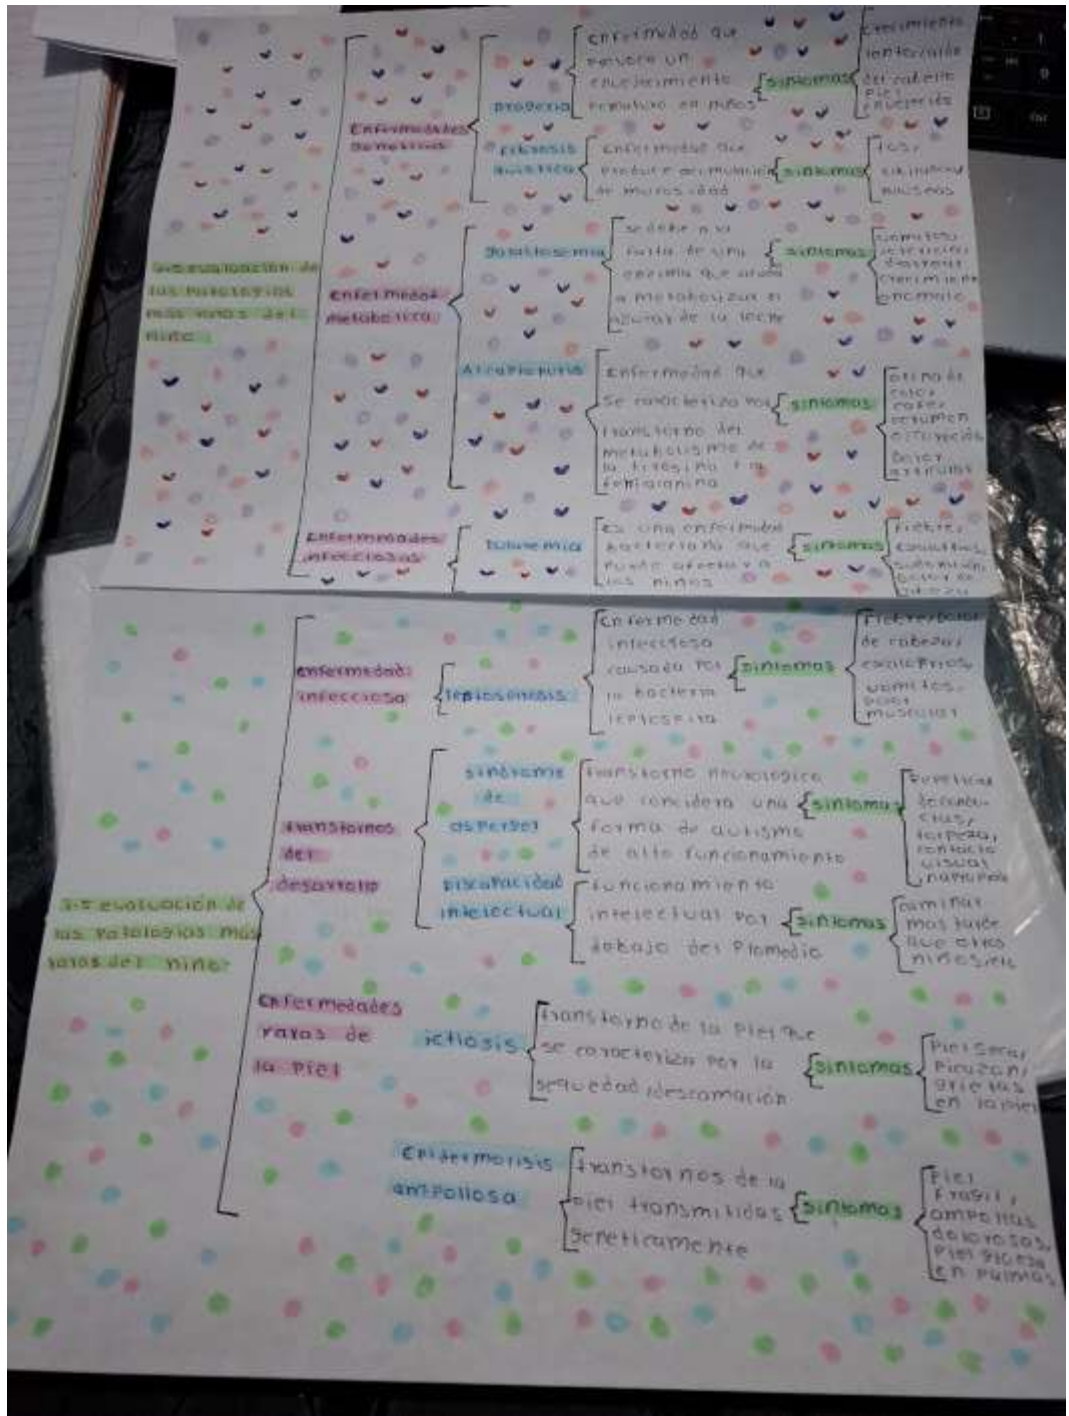 evaluación de
las patologias
mas raras del
niño.
Enfermedades
Geneticas
progeria
enfermedad que
envejecimiento
prematuro en niños
sintomas
crecimiento
del cabello
piel
envejecida
Fibrosis
quistica
Enfermedad que
produce acumulación
de mucosidad
sintomas
tos,
nauseas
Enfermedad
metabolica
Galactosemia
se debe a la
falta de una
enzima que ayuda
a metabolizar el
azucar de la leche
sintomas
vomitos,
ictericia,
diarrea,
crecimiento
Alcaptonuria
enfermedad que
se caracteriza por
transtorno del
metabolismo de
la tirosina y la
sintomas
orina de
color
cafe,
cerumen
oscurecido
Dolor
articular
Enfermedades
infecciosas
tularemia
Es una enfermedad
bacteriana que
puede afectar a
los niños
sintomas
Fiebre,
escalofrios,
Dolor de
cabeza
evaluación de
las patologias más
raras del niño.
enfermedad
infecciosa
Enfermedad
infecciosa
causada por
la bacteria
leptospira
sintomas
de cabeza,
escalofrios,
vomitos,
Dolor
muscular
transtornos
del
desarrollo
sindrome
de
asperger
transtorno neurologico
que considera una
forma de autismo
de alto funcionamiento
sintomas
de condu-
ctas,
torpeza,
contacto
visual
inapropiado
Discapacidad
intelectual
funcionamiento
intelectual por
debajo del promedio
sintomas
caminar
mas tarde
que otros
niños, etc
Enfermedades
raras de
la piel
ictiosis
transtorno de la piel que
se caracteriza por la
sequedad, descamación
sintomas
Piel seca,
picazon,
grietas
en la piel
Epidermolisis
ampollosa
transtornos de la
piel transmitidas
geneticamente
sintomas
Piel
Fragil,
ampollas
dolorosas,
Piel gruesa
en palmas